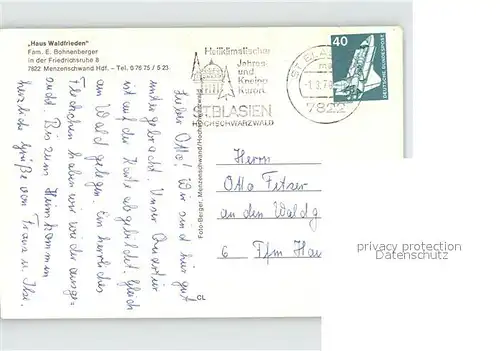 „Haus Waldfrieden"
Fam. E. Bohnenberger
in der Friedrichsruhe 8
7822 Menzenschwand Hdf. - Tel. 0 76 75 / 5 23
Lieber Otto! Wir sind hier gut
untergebracht. Unser Quartier
ist auf der Karte abgebildet. Gleich
am Wald gelegen. Ein herrliches
Fleckchen haben wir wieder ausge-
sucht. Bis zum Heimkommen
herzliche Grüße von Franz u. Ilse.
Foto-Berger, Menzenschwand/Hochschwarzwald
CL
Heilklimatischer
Jahres-
und
Kneipp
Kurort
ST. BLASIEN
HOCHSCHWARZWALD
ST. BLAS
7822
40
DEUTSCHE BUNDESPOST
Herrn
Otto Fetzer
an den Waldg
6 Ffm Hau
privacy protection
Datenschutz